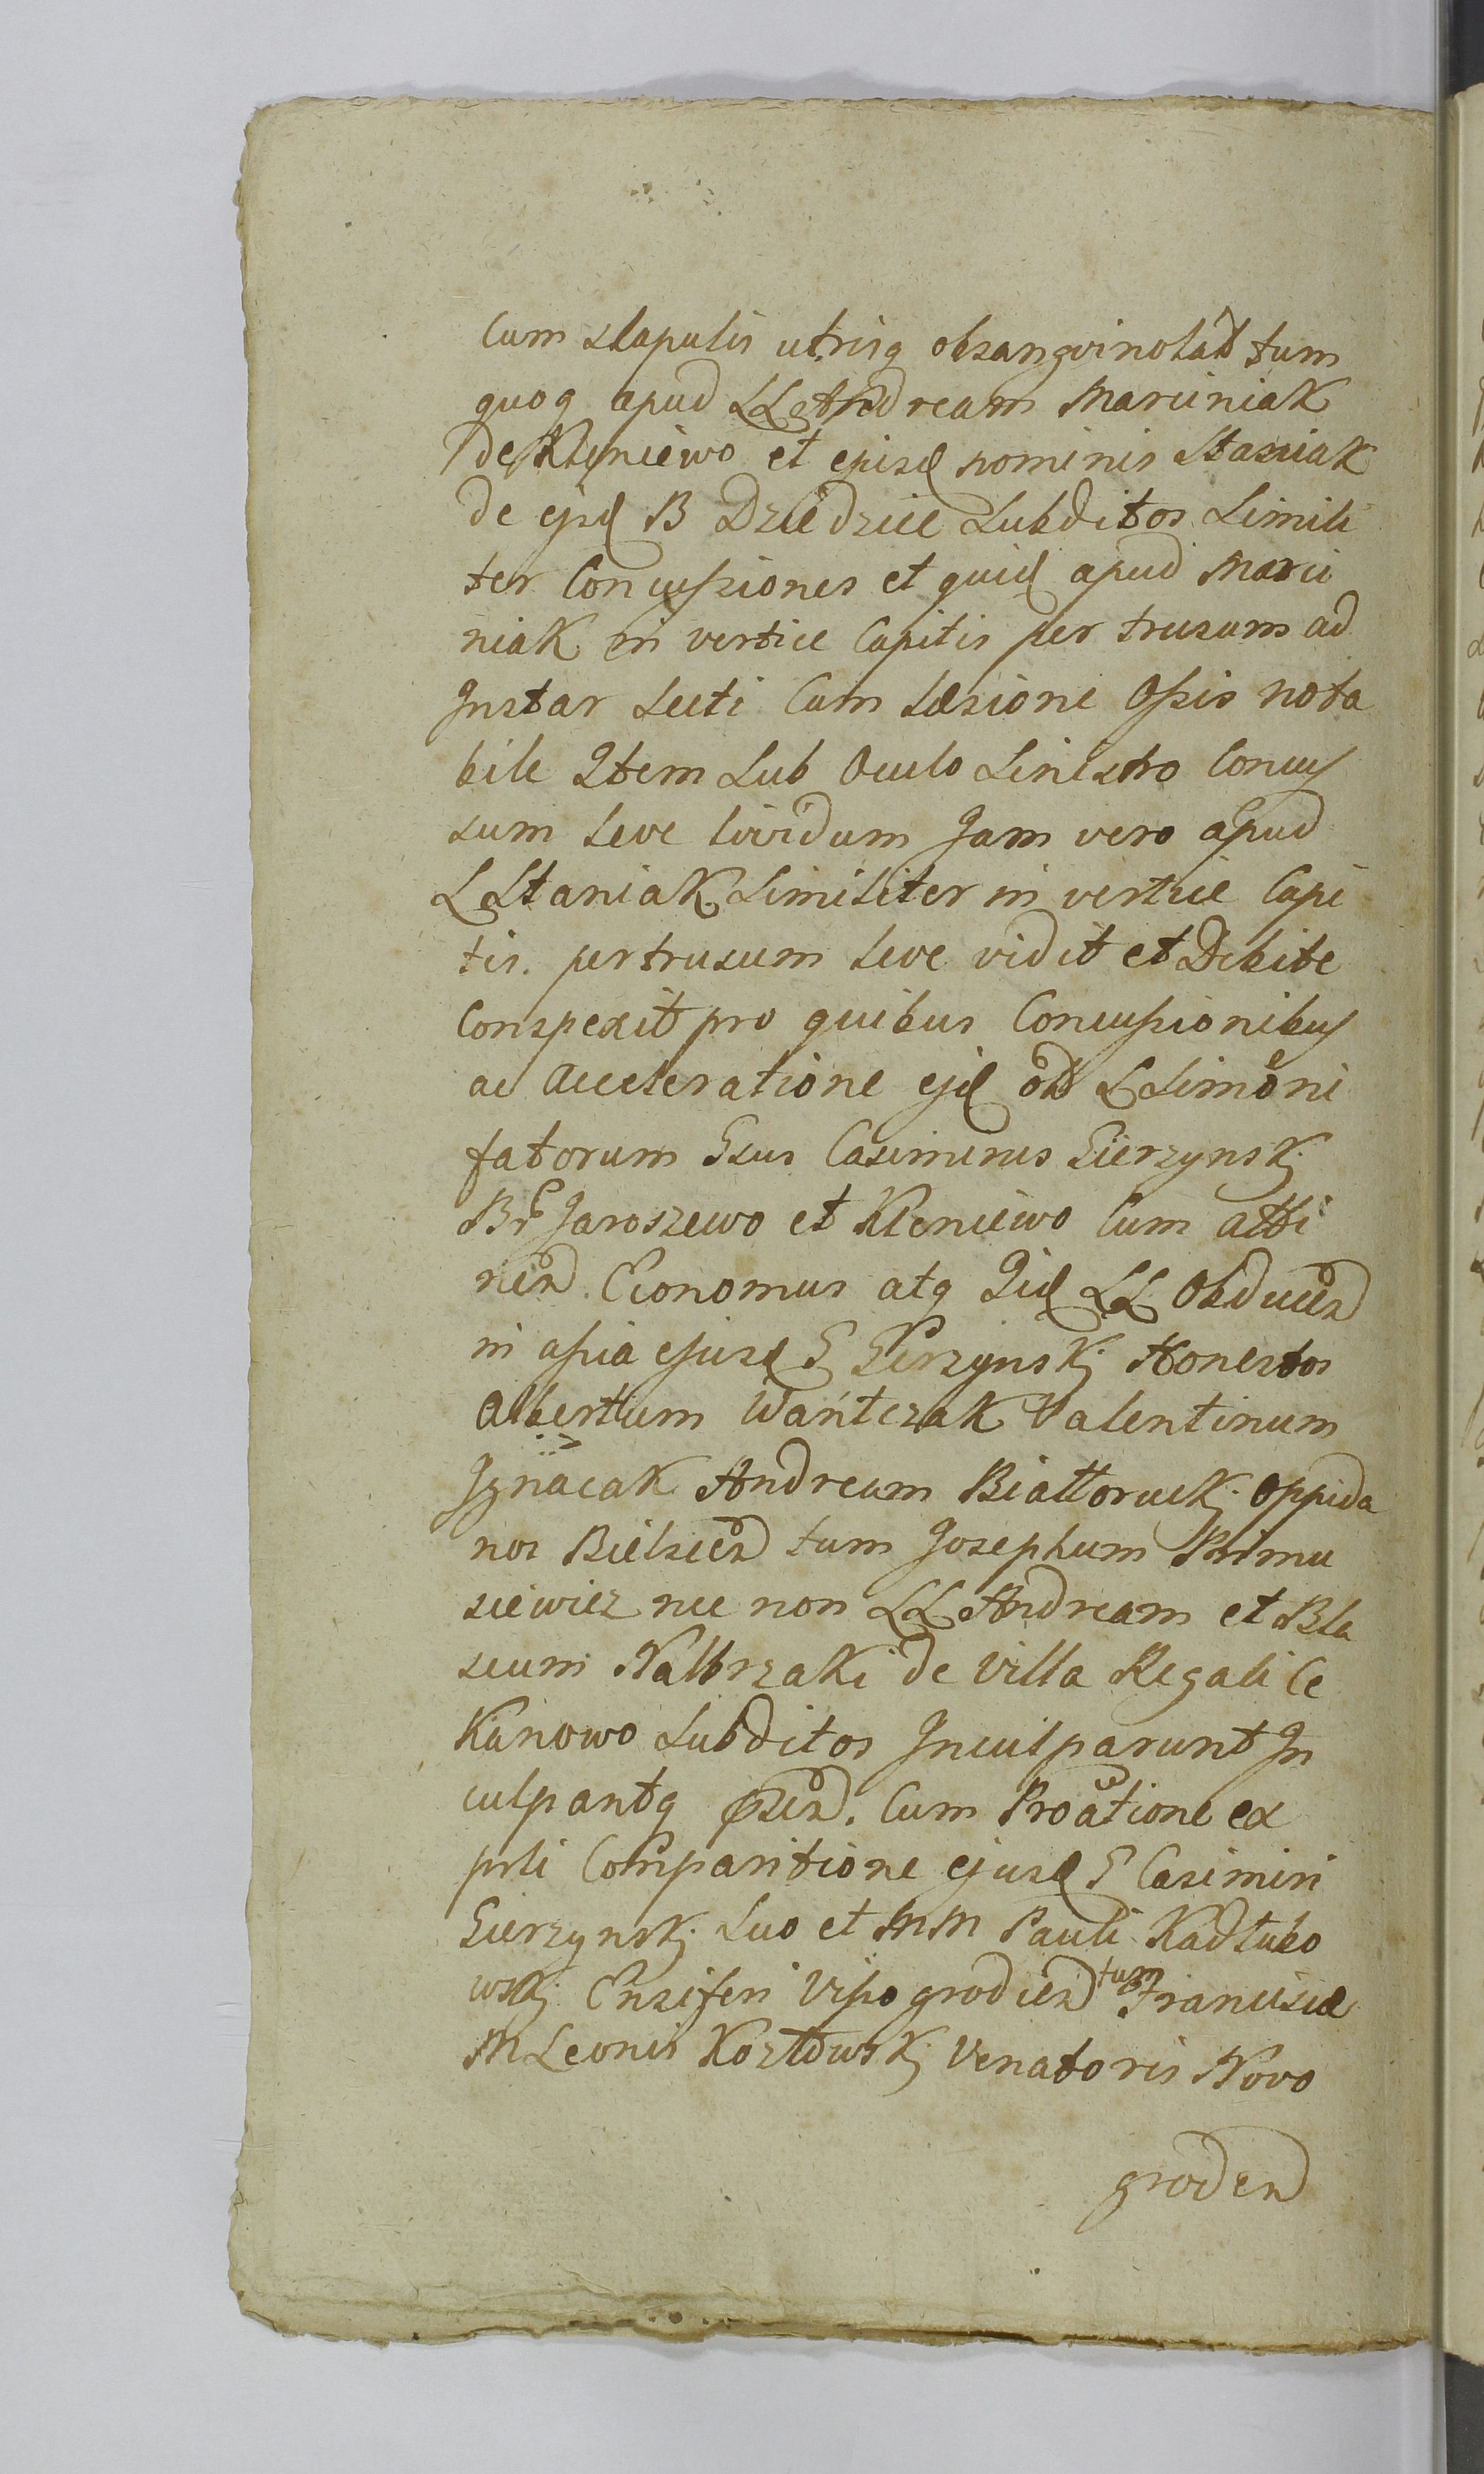 Cum Slapulis utrisq obsangvinolat tum
quoq apud LL Andream Marciniak
de Kleniewo et ejusd nominis Staniak
de ejsd B Dziedzice Subditos Simili
ter Concussiones et quid apud Marci
niak in vertice Capitis per trusum ad
Instar Secti Cum Læsione Ossis nota
bile Item Sub Oculo Sinistro Concus
sum Leve lividum Jam vero apud
L Staniak Similiter in vertice Capi
tis. pertrusum Leve vidit et Debite
Conspexit pro quibus Concussionibus
ac Acceleratione ejd L Simoni
fatorum Gsus Casimirus Gierzynskj
Jaroszewo et Kleniewo Cum atti
nen Economus atq Iid LL Obducen
in assia ejusd G Gierzynskj Honestos
Albertum Wańtczak Valentinum
Ignacak Andream Białłoruckj Oppida
nos Bielscen tum Josephum Primu
siewicz nec non LL Andream et Bla
sium Nalbrzaki de Villa Regali Ce
kanowo Subditos Inculparunt In
culpantq Cum Proātione ex
prti Comparitione ejusd G Casimiri
Gierzynskj Suo et MM Pauli Kadłubo
wskj Ensiferi Visso grodien tum Francisci
M Leonis Kozłowskj Venatoris Novo
groden